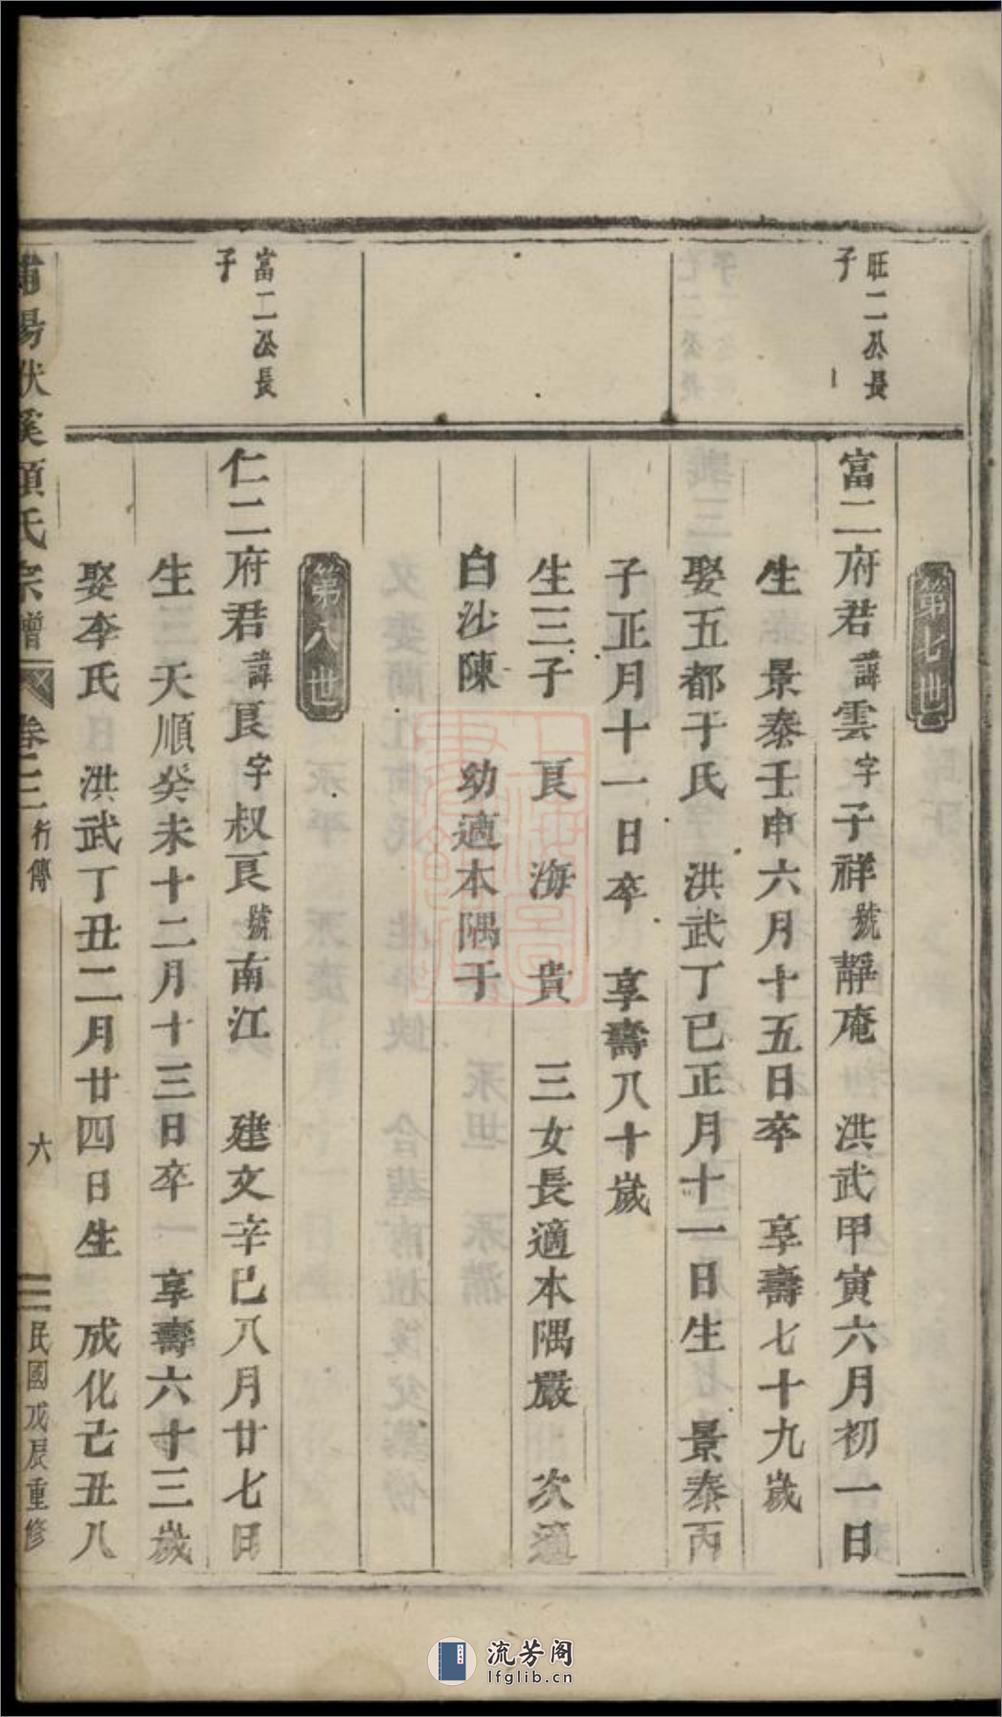 第七世
旺二公長
子
富二府君諱雲字子祥號靜庵　洪武甲寅六月初一日
生　景泰壬申六月十五日卒　享壽七十九歲
娶五都于氏　洪武丁巳正月十一日生　景泰丙
子正月十一日卒　享壽八十歲
生三子　良　海　貴　三女長適本隅嚴　次適
白沙陳　幼適本隅于
第八世
富二公長
子
仁二府君諱良字叔良號南江　建文辛巳八月廿七日
生　天順癸未十二月十三日卒　享壽六十三歲
娶李氏　洪武丁丑二月廿四日生　成化己丑八
浦陽狀溪項氏宗譜　卷二三　行傳　六　民國戊辰重修
流芳阁
lfglib.cn